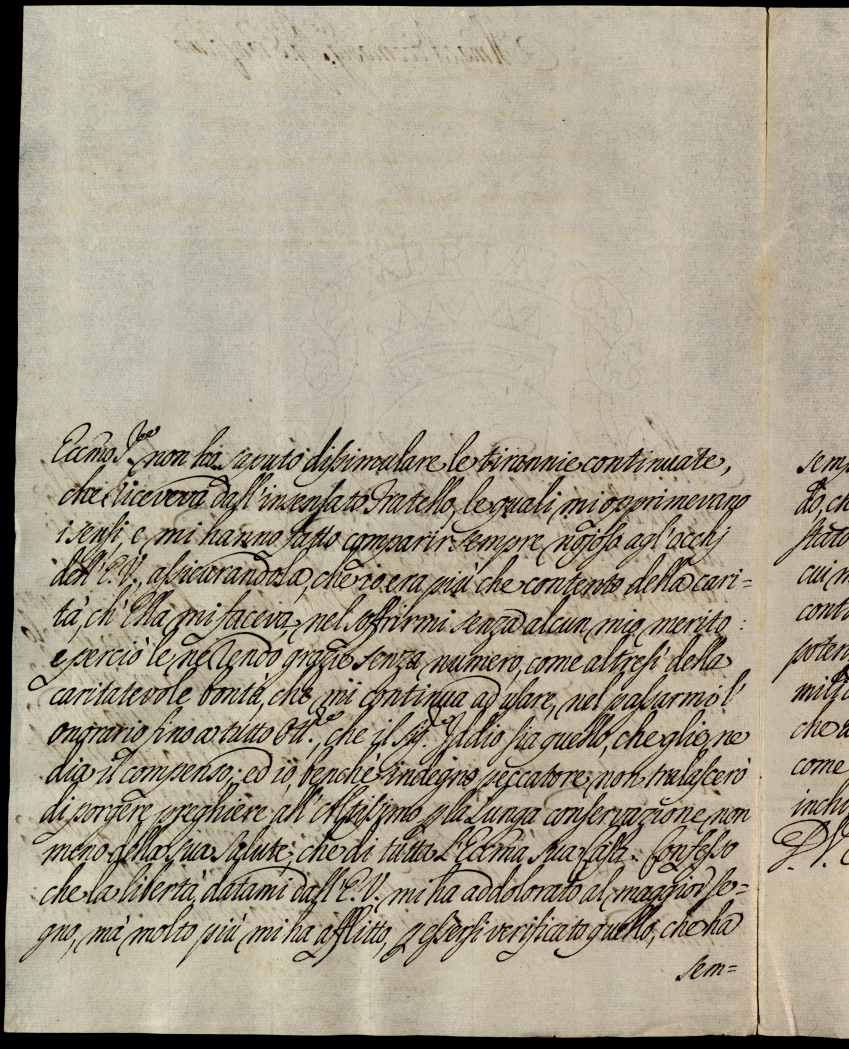 Eccmo Sre non ha saputo dissimulare le tirannie continuate,
che riceveva dall'insensato Fratello, le quali mi opprimevano
i sensi, e mi hanno fatto comparir sempre nojoso agl'occhj
dell'E.V., assicurandola, che io era più che contento della cari=
tà, ch'Ella mi faceva, nel soffrirmi senza alcun mio merito:
e perciò le ne rendo grazie senza numero, come altresì della
caritatevole bontà, che mi continua ad usare, nel passarmi l'
onorario fino a tutto Ott.e, che il Sig.e Iddio sia quello, che glie ne
dia il compenso; ed io, benchè indegno peccatore, non tralascerò
di porgere preghiere all'Altissimo p la lunga conservazione, non
meno della Sua Salute, che di tutta l'Eccma Sua Casa. Confesso
che la libertà, datami dall'E.V. mi ha addolorato al maggior se=
gno, mà molto più mi ha afflitto, p essersi verificato quello, che ha
sem=
semp
do, ch
stato
cui m
conti
poten
miglio
che a
come
inchi
D.V.